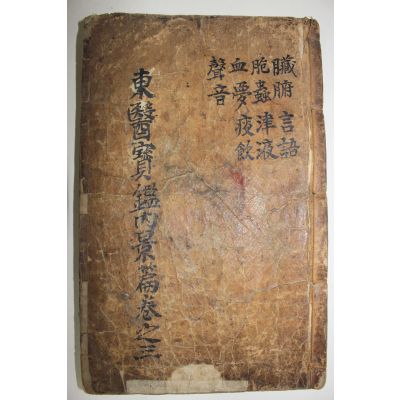 臟腑 言語
胞蟲津液
血夢痰飮
聲音
東醫寶鑑內景篇卷之三